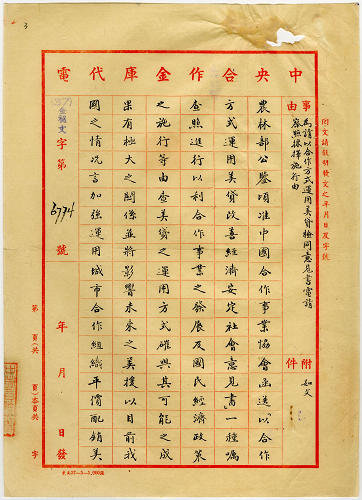 3
復文請敘明發文之年月日及字號
中央合作金庫代電
事由
為請以合作方式運用美貸檢同意見書電請
察照採擇施行由
附件
如文
農林部公鑒頃准中國合作事業協會函送以合作
方式運用美貸改善經濟安定社會意見書一種囑
查照進行以利合作事業之發展及國民經濟政策
之施行等由查美貸之運用方式確與其可能之成
果有極大之關係並將影響未來之美援以目前我
國之情況言加強運用城市合作組織平價配銷美
(37)
文字第6774號 年 月 日發
第 頁(共 頁)本頁共 字